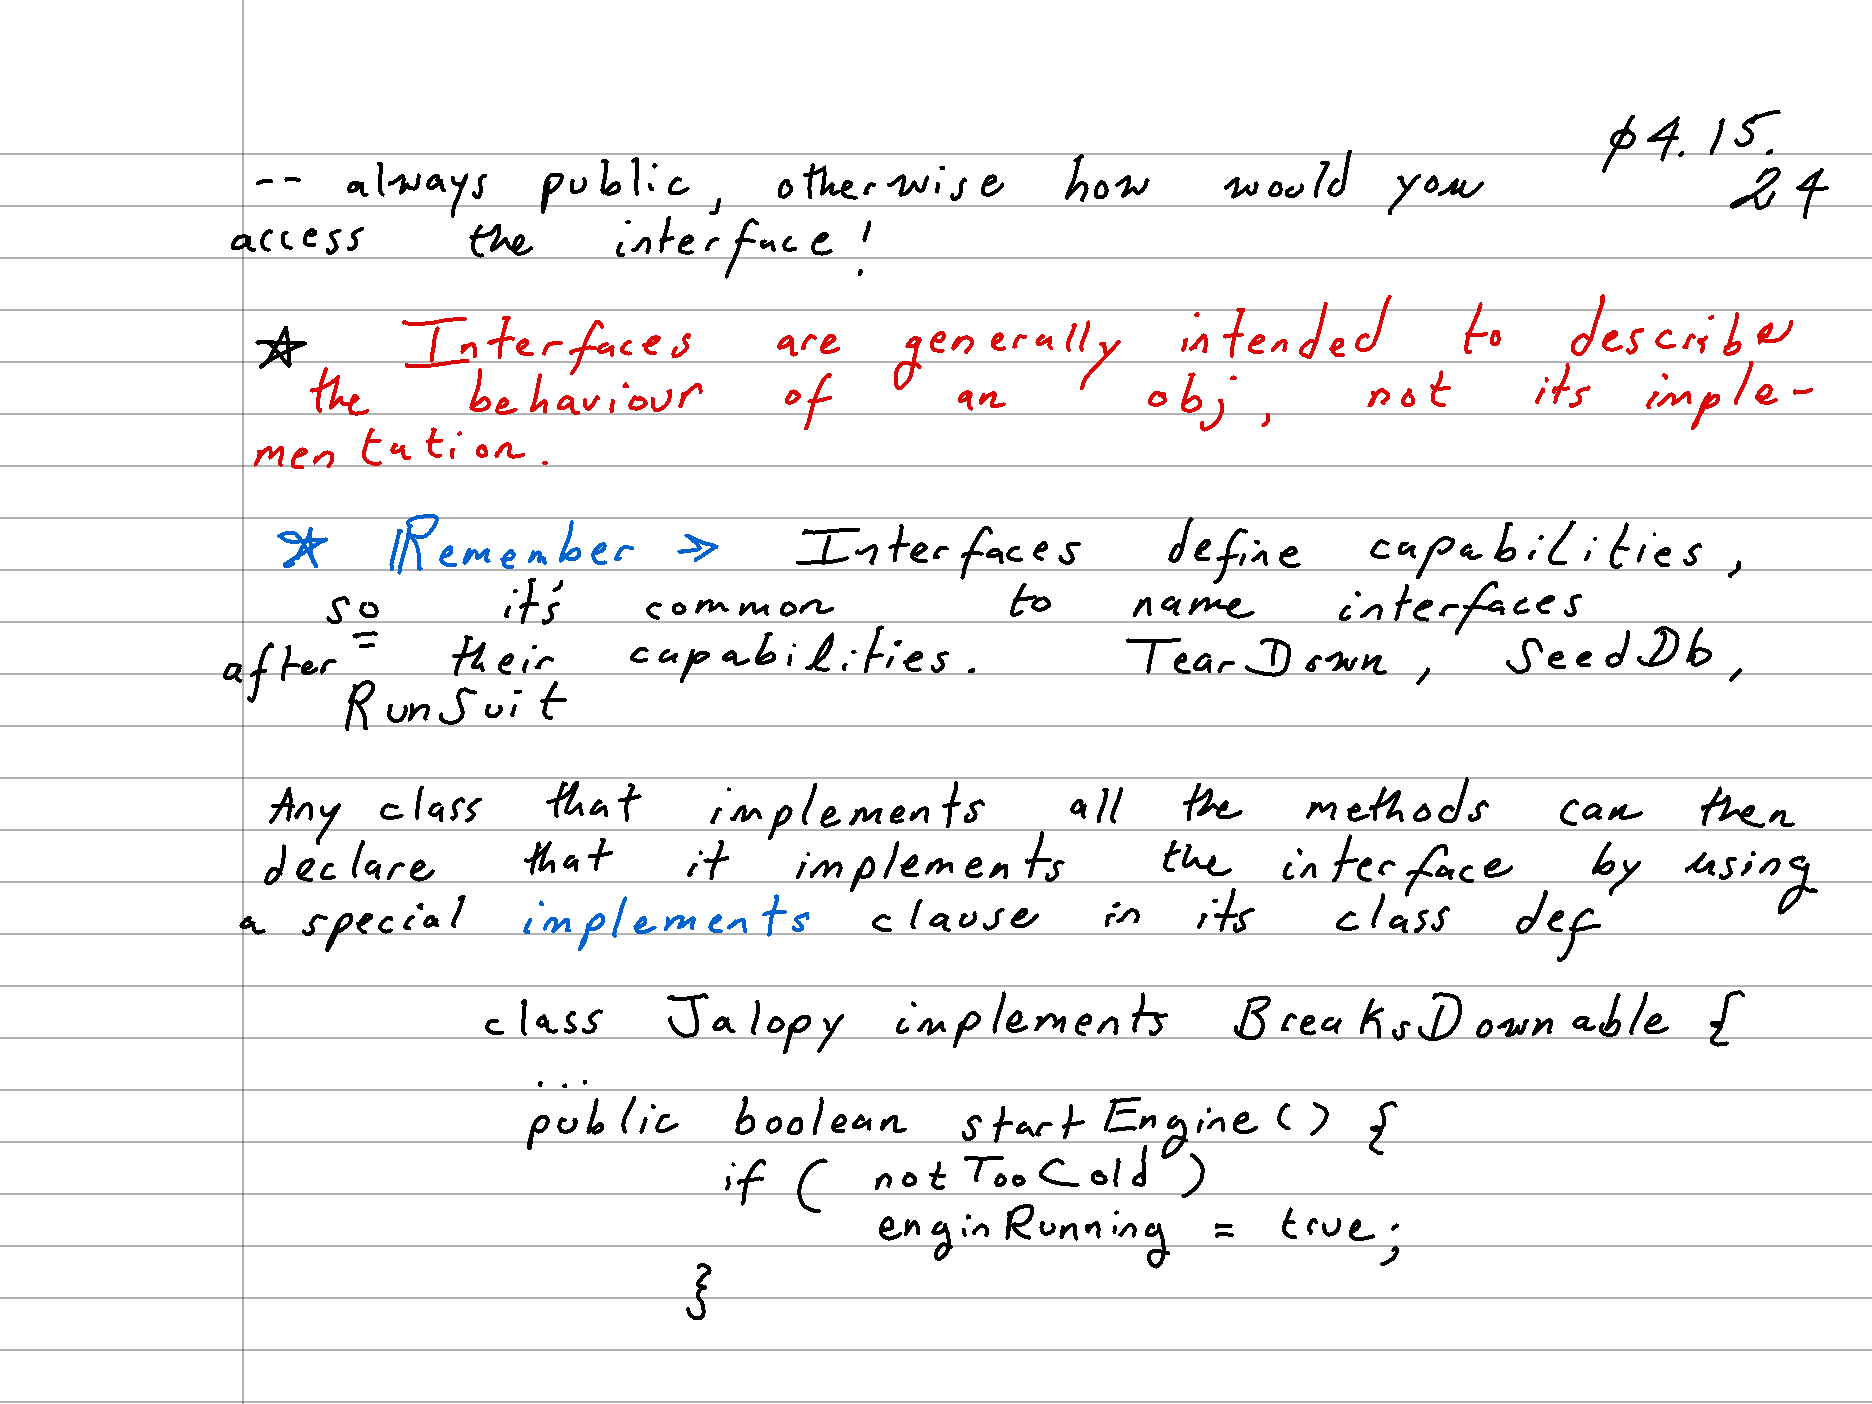 ø4.15.
24
-- always public, otherwise how would you
access the interface!
☆ Interfaces are generally intended to describe
the behaviour of an obj, not its imple-
mentation.
☆ Remember » Interfaces define capabilities,
so it's common to name interfaces
after their capabilities. TearDown, SeedDb,
RunSuit
Any class that implements all the methods can then
declare that it implements the interface by using
a special implements clause in its class def
class Jalopy implements BreaksDownable {
...
public boolean startEngine() {
if ( notTooCold )
enginRunning = true;
}